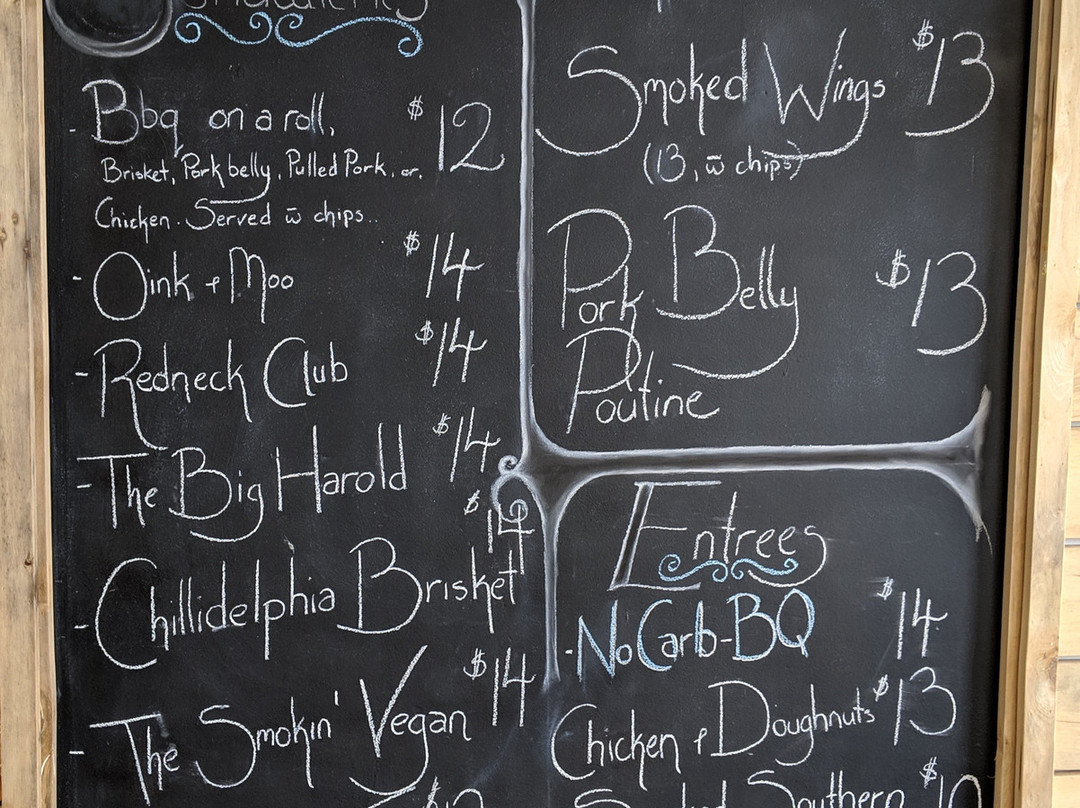 - Bbq on a roll, $12
Brisket, Pork belly, Pulled Pork, or,
Chicken. Served w̄ chips..
- Oink + Moo $14
- Redneck Club $14
- The Big Harold $14
- Chillidelphia Brisket $14
- The Smokin' Vegan $14
Smoked Wings $13
(13, w̄ chips)
Pork Belly $13
Poutine
Entrees
- No Carb-BQ $14
Chicken + Doughnuts $13
Southern $10